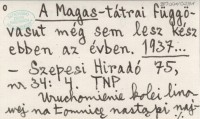 A Magas-tátrai függő-
vasut még sem lesz kész
ebben az évben. 1937...
— Szepesi Hiradó 75,
nr 34: 4. TNP
Uruchomienie kolei lino
wej na Łomnicę nastąpi naj-